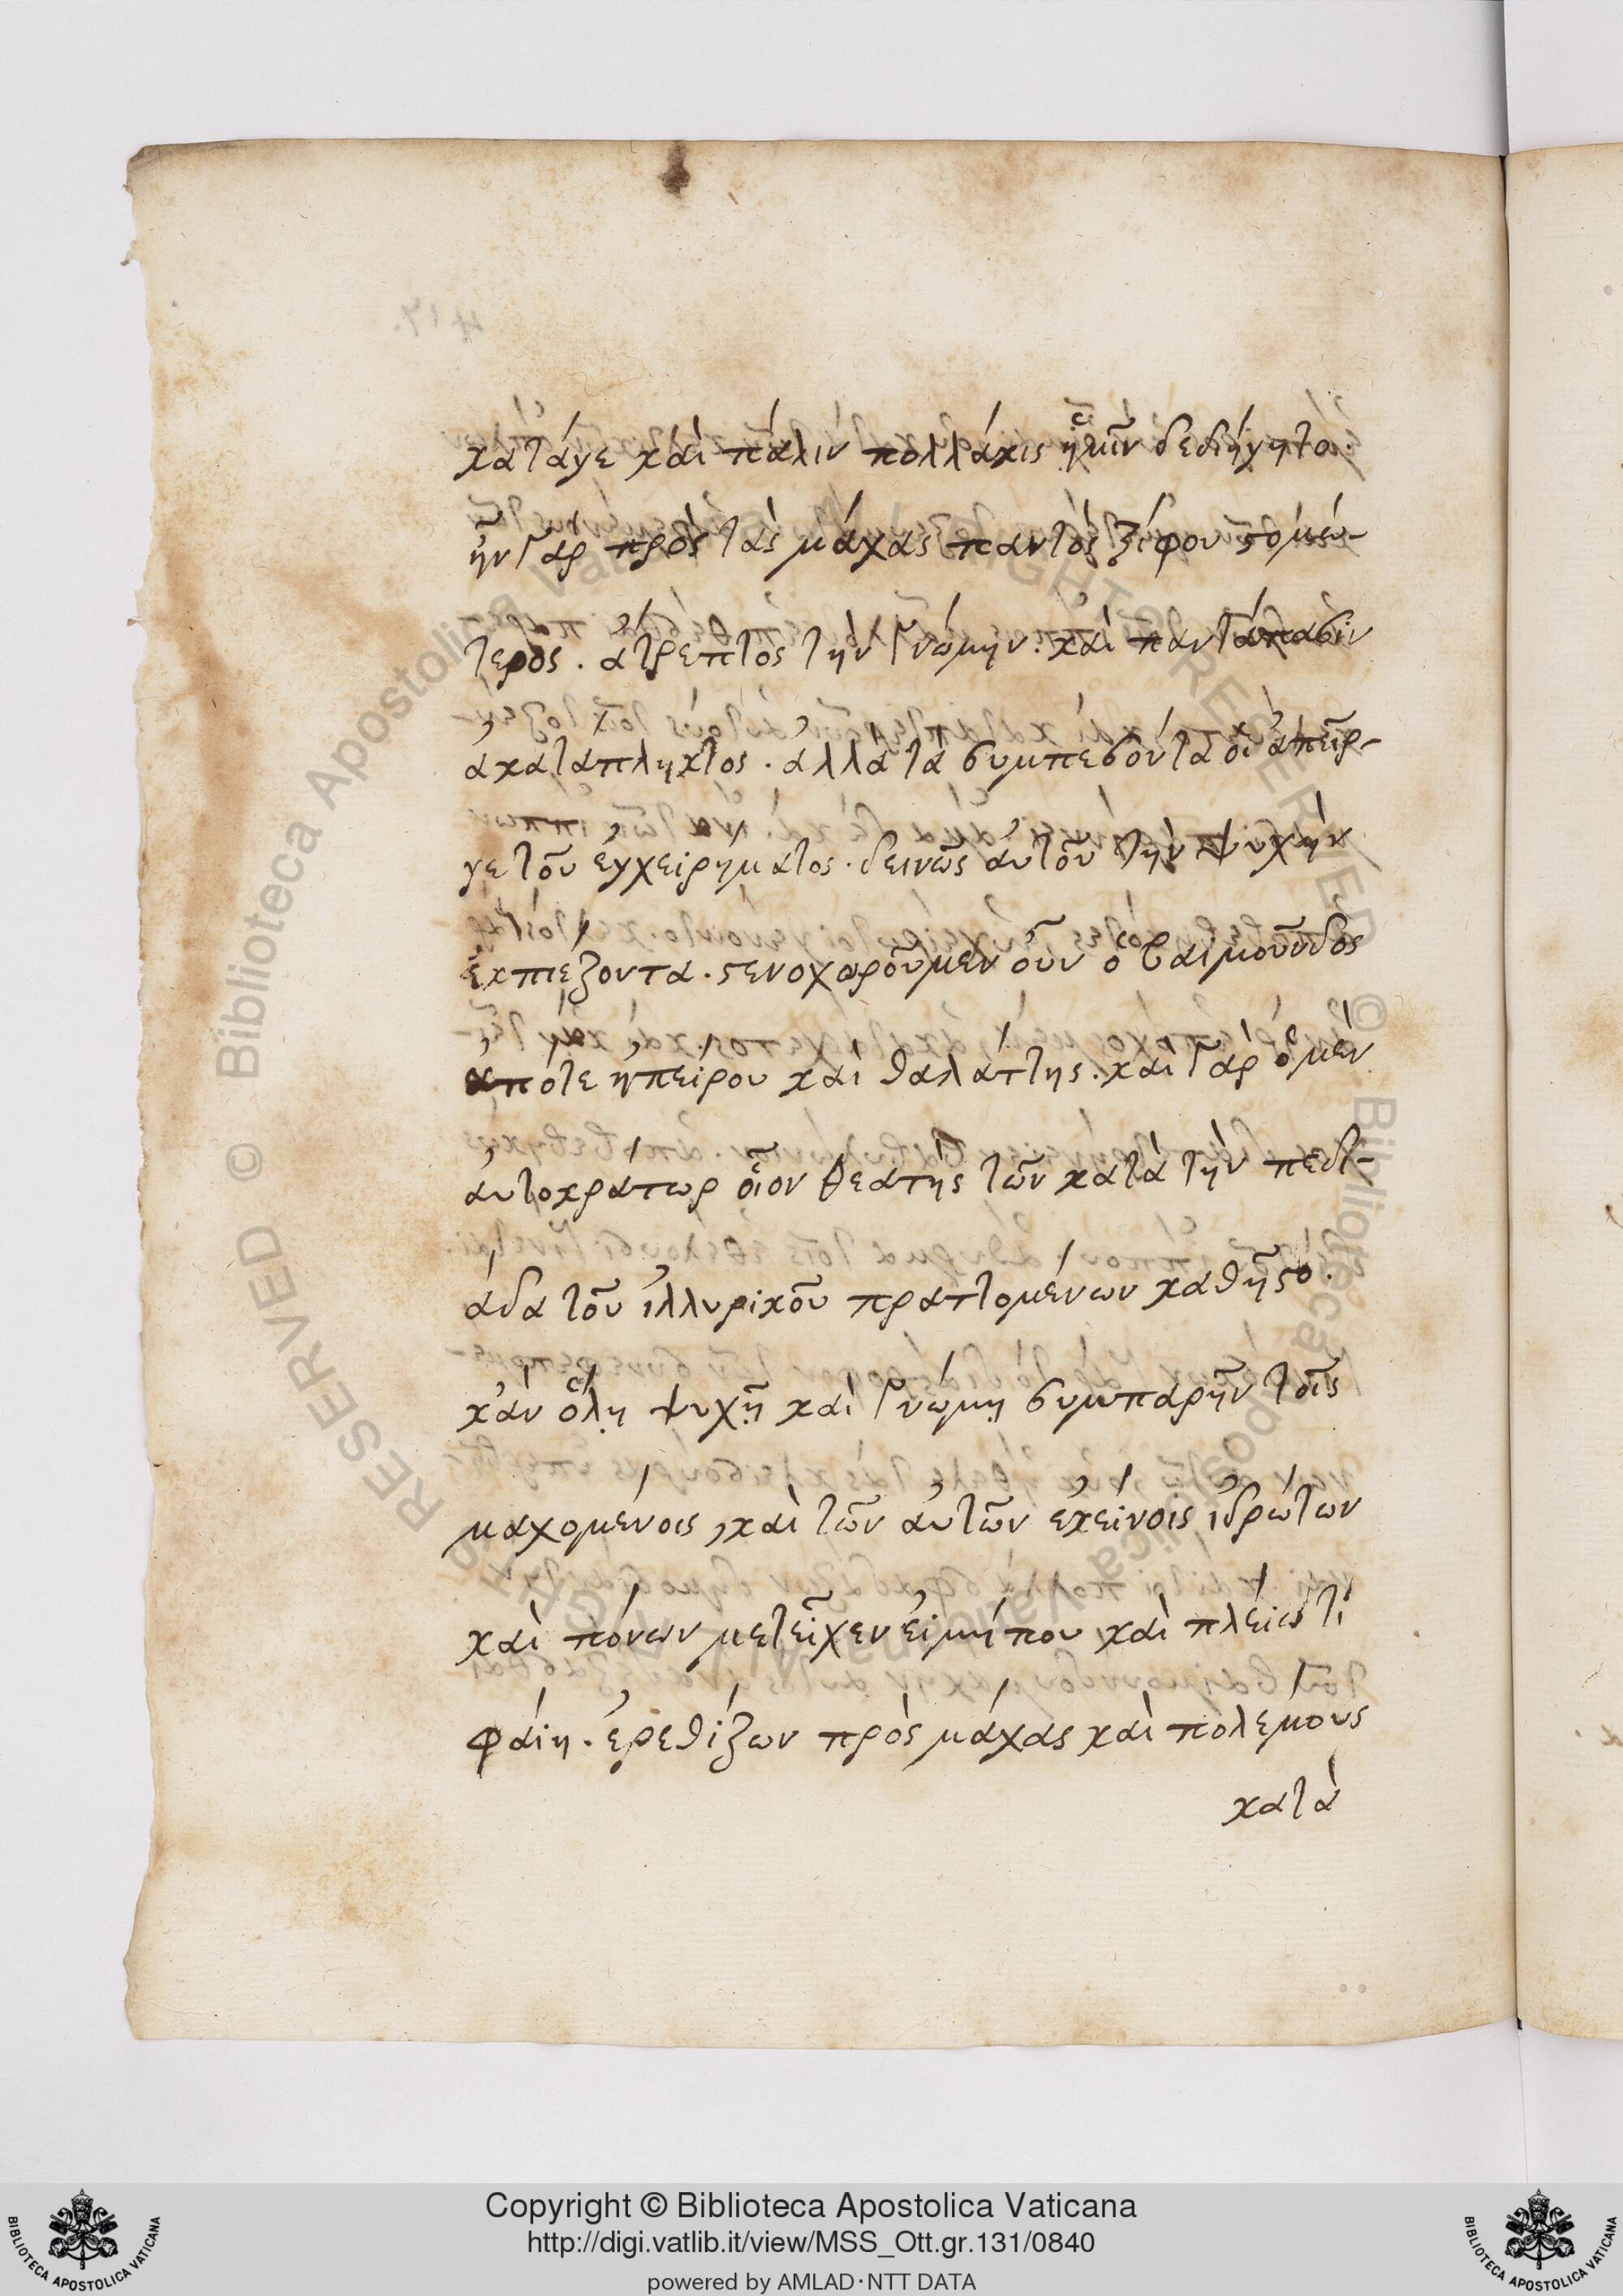 κατάγε καὶ πάλιν πολλάκις ἡμῖν δεδιήγητο.
ἦν γὰρ πρὸς τὰς μάχας παντὸς ξίφου στομώ-
τερος. ἄτρεπτος τὴν γνώμην. καὶ παντάπασιν
ἀκατάπληκτος. ἀλλὰ τὰ συμπεσόντα οἱ ἀπεῖρ-
γε τοῦ ἐγχειρήματος. δεινῶς αὐτοῦ τὴν ψυχὴν
ἐκπιέζοντα. στενοχωροῦμεν οὖν ὁ βαϊμοῦνδος
ἀπό τε ἠπείρου καὶ θαλάττης. καὶ γὰρ ὁ μὲν
αὐτοκράτωρ οἷον θεατὴς τῶν κατὰ τὴν πεδι-
άδα τοῦ ἰλλυρικοῦ πραττομένων καθῆστο.
κἂν ὅλῃ ψυχῇ καὶ γνώμῃ συμπαρῆν τοῖς
μαχομένοις, καὶ τῶν αὐτῶν ἐκείνοις ἱδρώτων
καὶ πόνων μετεῖχεν εἰμήπου καὶ πλείω τὶ
φαίη. ἐρεθίζων πρὸς μάχας καὶ πολέμους
κατὰ
Copyright © Biblioteca Apostolica Vaticana
http://digi.vatlib.it/view/MSS_Ott.gr.131/0840
powered by AMLAD·NTT DATA
BIBLIOTECA APOSTOLICA VATICANA
BIBLIOTECA APOSTOLICA VATICANA